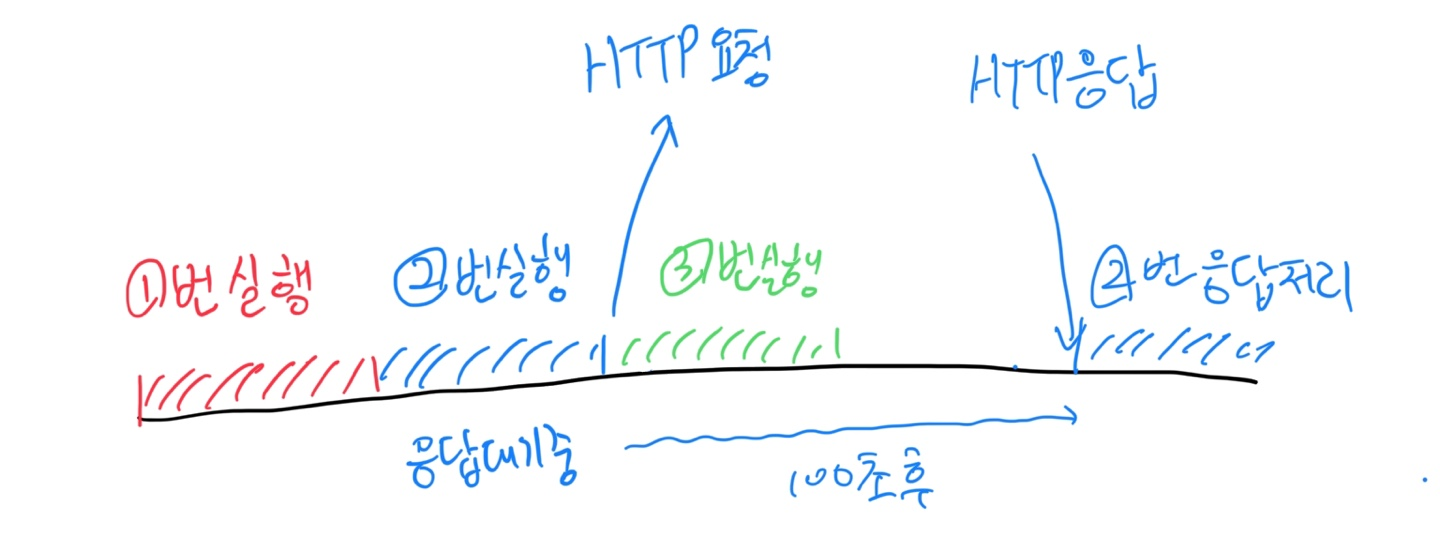 HTTP 요청
HTTP 응답
①번 실행
②번 실행
③번 실행
②번 응답처리
응답대기중
100초 후